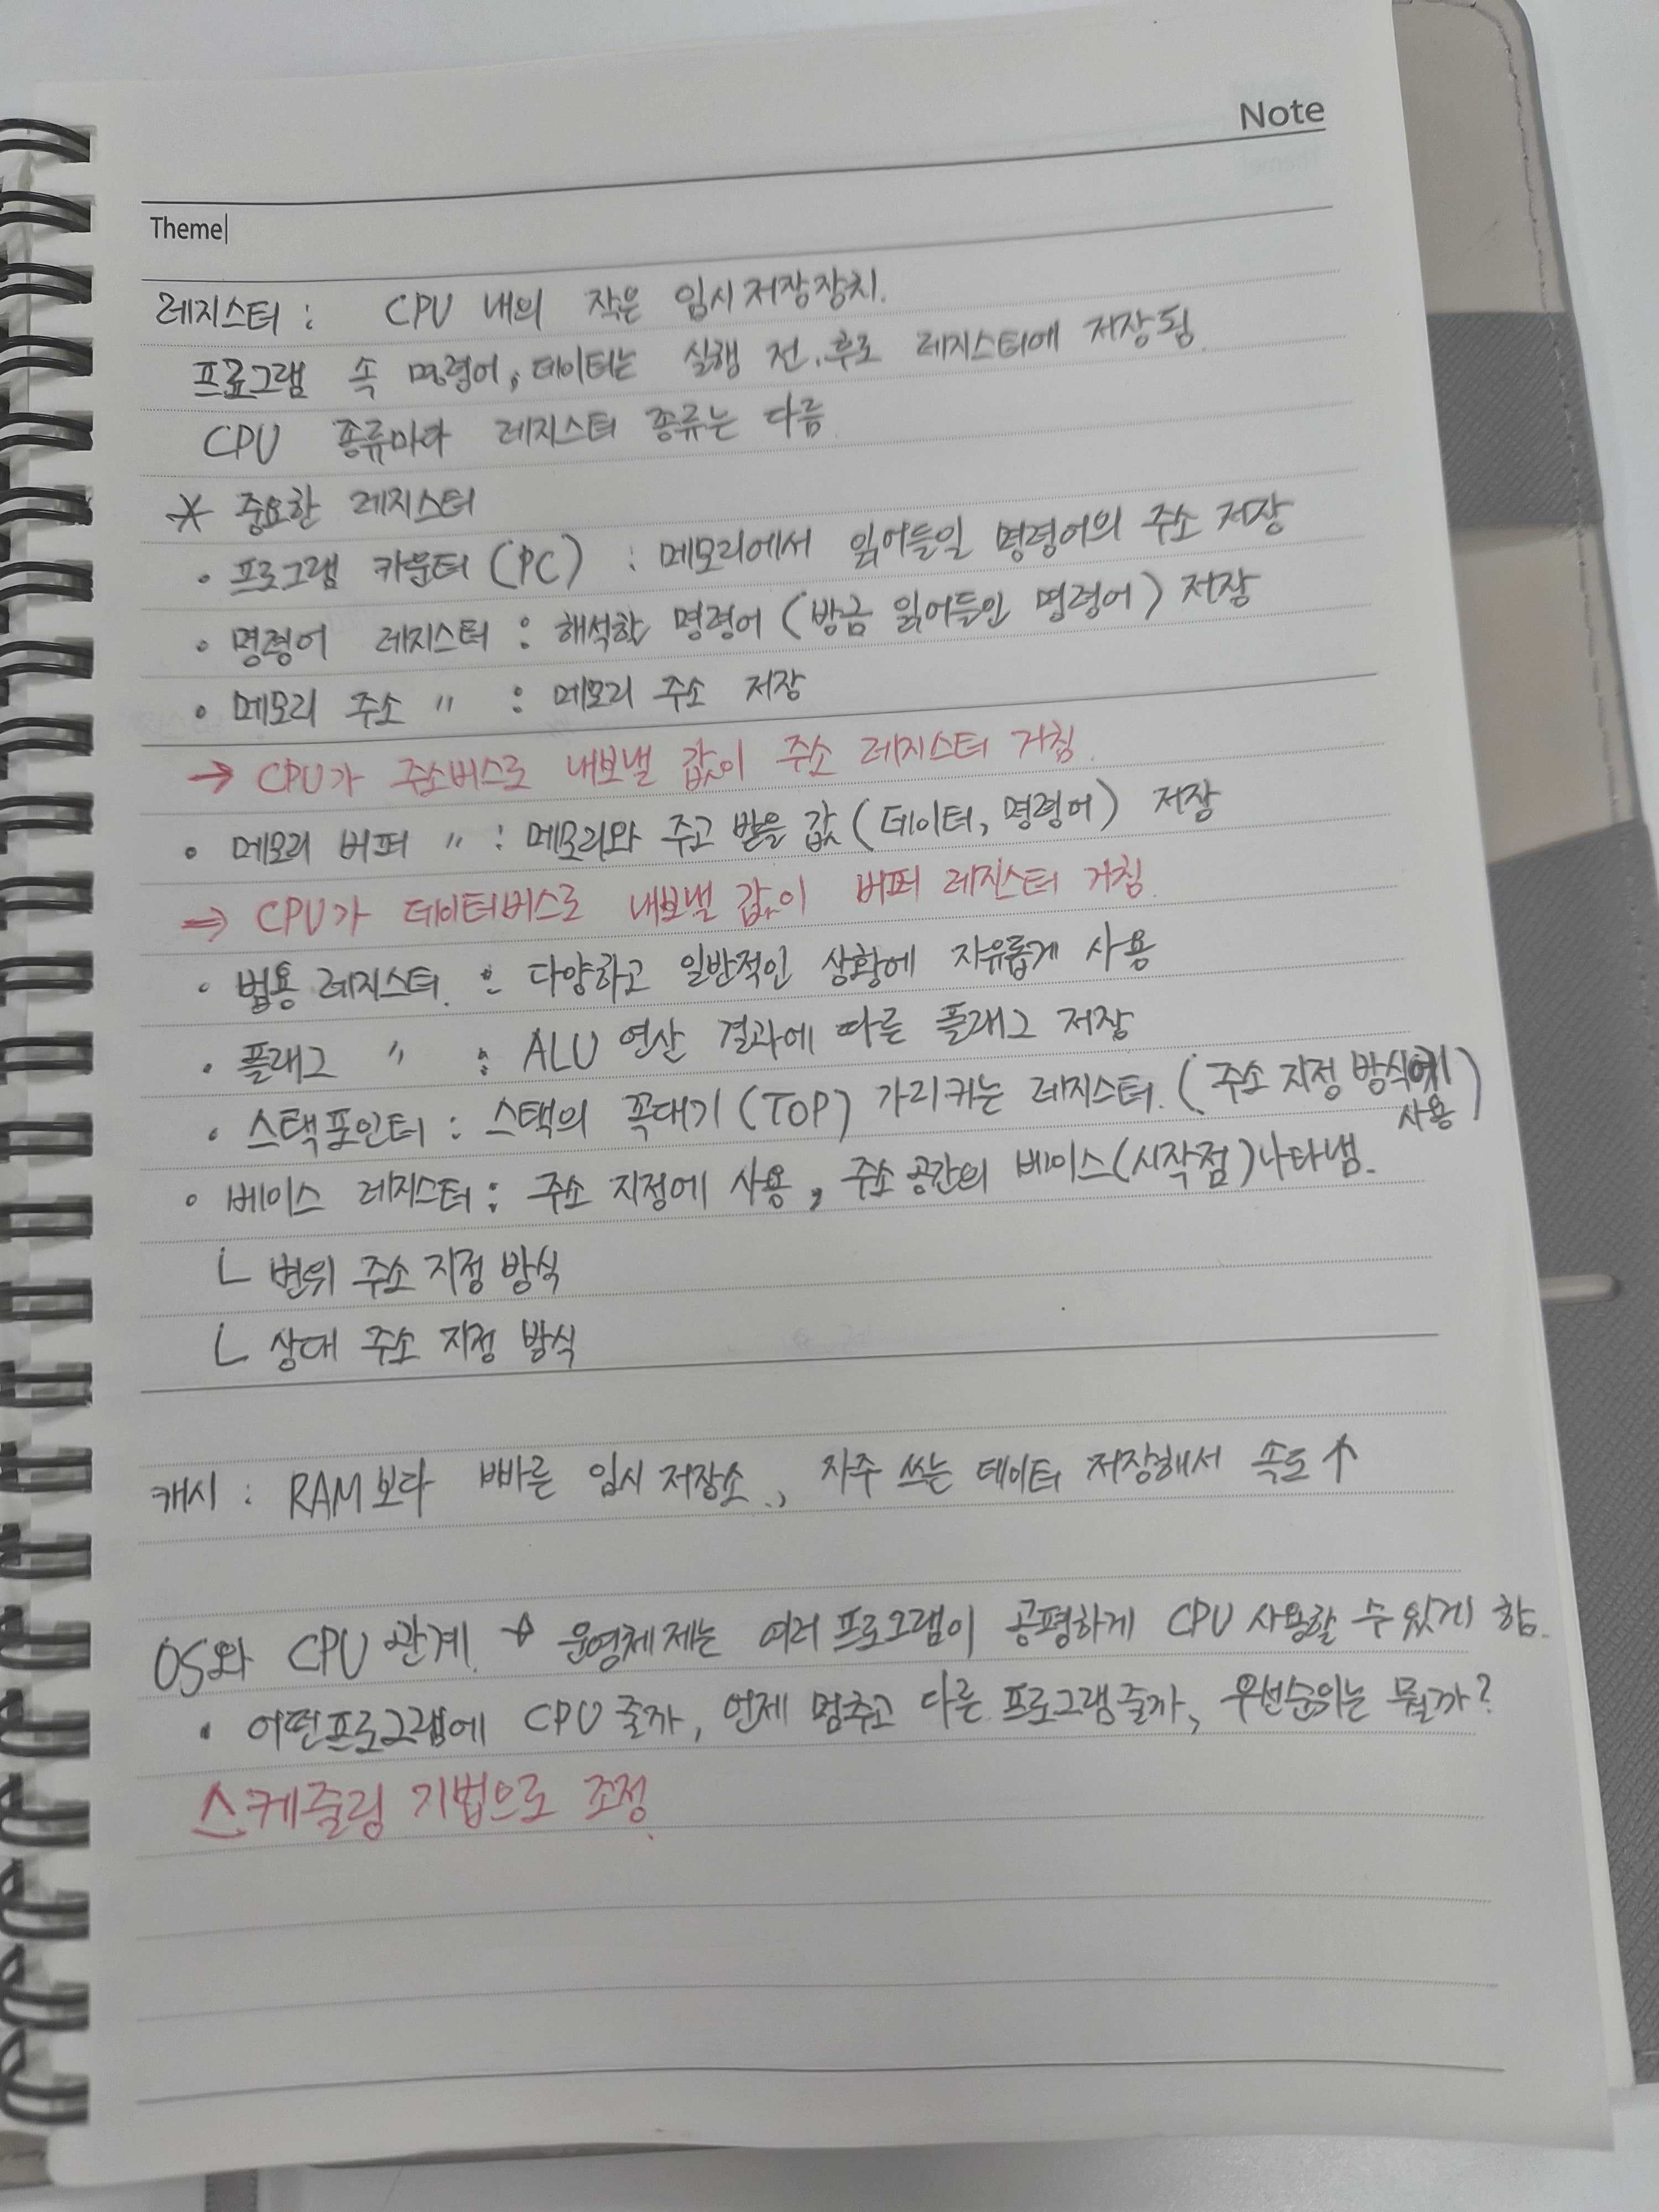 Note
Theme
레지스터 : CPU 내의 작은 임시저장장치.
프로그램 속 명령어, 데이터는 실행 전.후로 레지스터에 저장됨.
CPU 종류마다 레지스터 종류는 다름.
* 중요한 레지스터
· 프로그램 카운터 (PC) : 메모리에서 읽어들일 명령어의 주소 저장
· 명령어 레지스터 : 해석할 명령어 (방금 읽어들인 명령어) 저장
· 메모리 주소 〃 : 메모리 주소 저장
→ CPU가 주소버스로 내보낼 값이 주소 레지스터 거침.
· 메모리 버퍼 〃 : 메모리와 주고 받을 값 (데이터, 명령어) 저장
⇒ CPU가 데이터버스로 내보낼 값이 버퍼 레지스터 거침.
· 범용 레지스터. : 다양하고 일반적인 상황에 자유롭게 사용
· 플래그 〃 : ALU 연산 결과에 따른 플래그 저장
· 스택포인터 : 스택의 꼭대기 (TOP) 가리키는 레지스터. (주소 지정 방식에 사용)
· 베이스 레지스터 : 주소 지정에 사용, 주소 공간의 베이스(시작점)나타냄.
ㄴ 변위 주소 지정 방식
ㄴ 상대 주소 지정 방식
캐시 : RAM보다 빠른 임시 저장소., 자주 쓰는 데이터 저장해서 속도↑
OS와 CPU 관계. → 운영체제는 여러 프로그램이 공평하게 CPU 사용할 수 있게 함.
· 어떤프로그램에 CPU 줄까, 언제 멈추고 다른 프로그램줄까, 우선순위는 뭘까?
스케줄링 기법으로 조정.